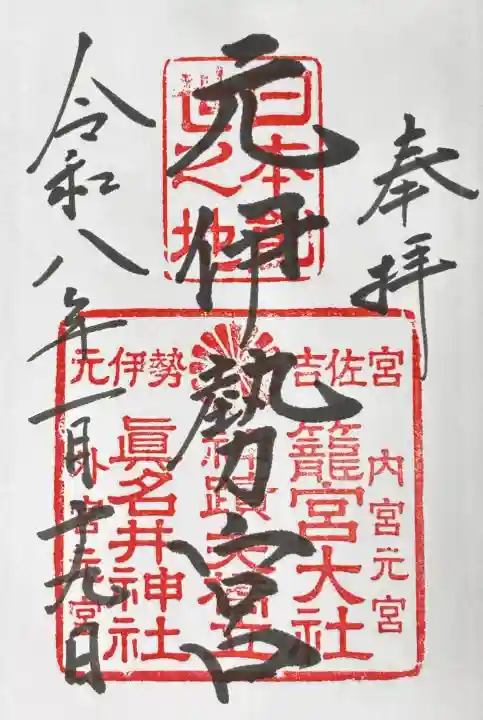 奉拝
元伊勢宮
令和八年一月十九日
日本創
之地
元伊勢 吉佐宮
内宮元宮
籠宮大社
眞名井神社
外宮元宮